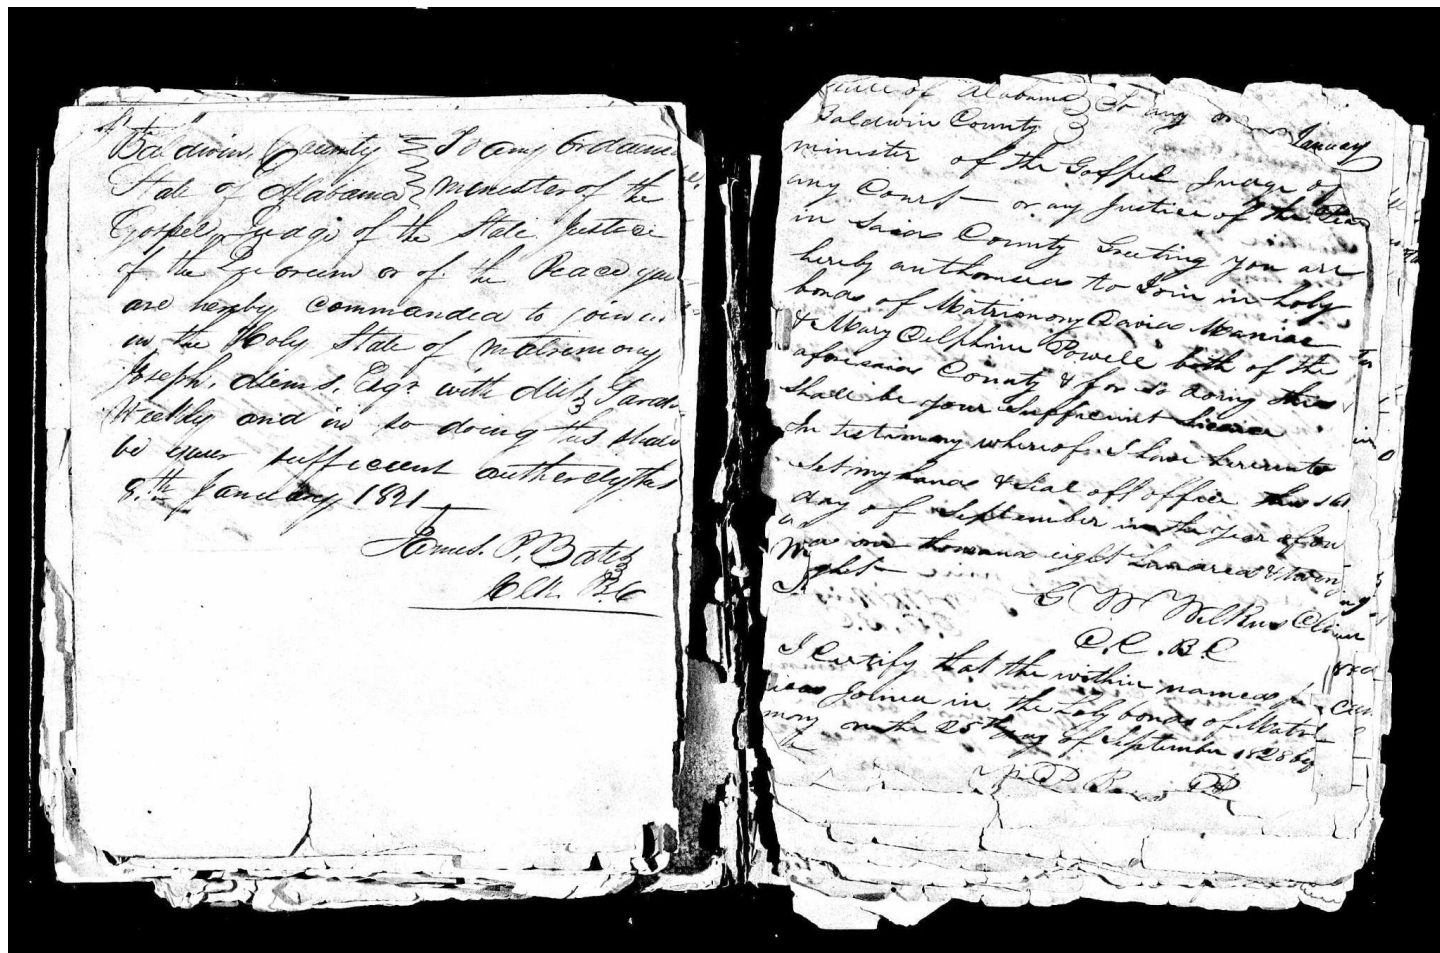 Baldwin, County } To any ordain
State of Alabama } Minister of the
Gospel, Judge of the State Justice
of the Quorum or of the Peace you
are hereby commanded to join in
in the Holy State of matrimony
Joseph, Esqr. with Miss Sarah
Weekly and in so doing this shall
be your sufficient authority this
8.th January 1821
James. P. Bates
Clk. B.C
State of Alabama } To any or
January
Baldwin County }
minister of the Gospel Judge of
any Court or any Justice of the Pea
in Said County Greeting you are
hereby authorised to Join in holy
bonds of Matrimony David Maniac
& Mary Delphine Powell both of the
aforesaid County & for so doing this
shall be your sufficient licence
In testimony whereof I have hereunto
Set my hand & Seal off office this 1st
day of September in the year of our
one thousand eight hundred & twen
eight
C W Wilkins
C.C. B.C
I Certify that the within named
was Joined in the holy bonds of Matri
mony on the 25th day of September 1828 by